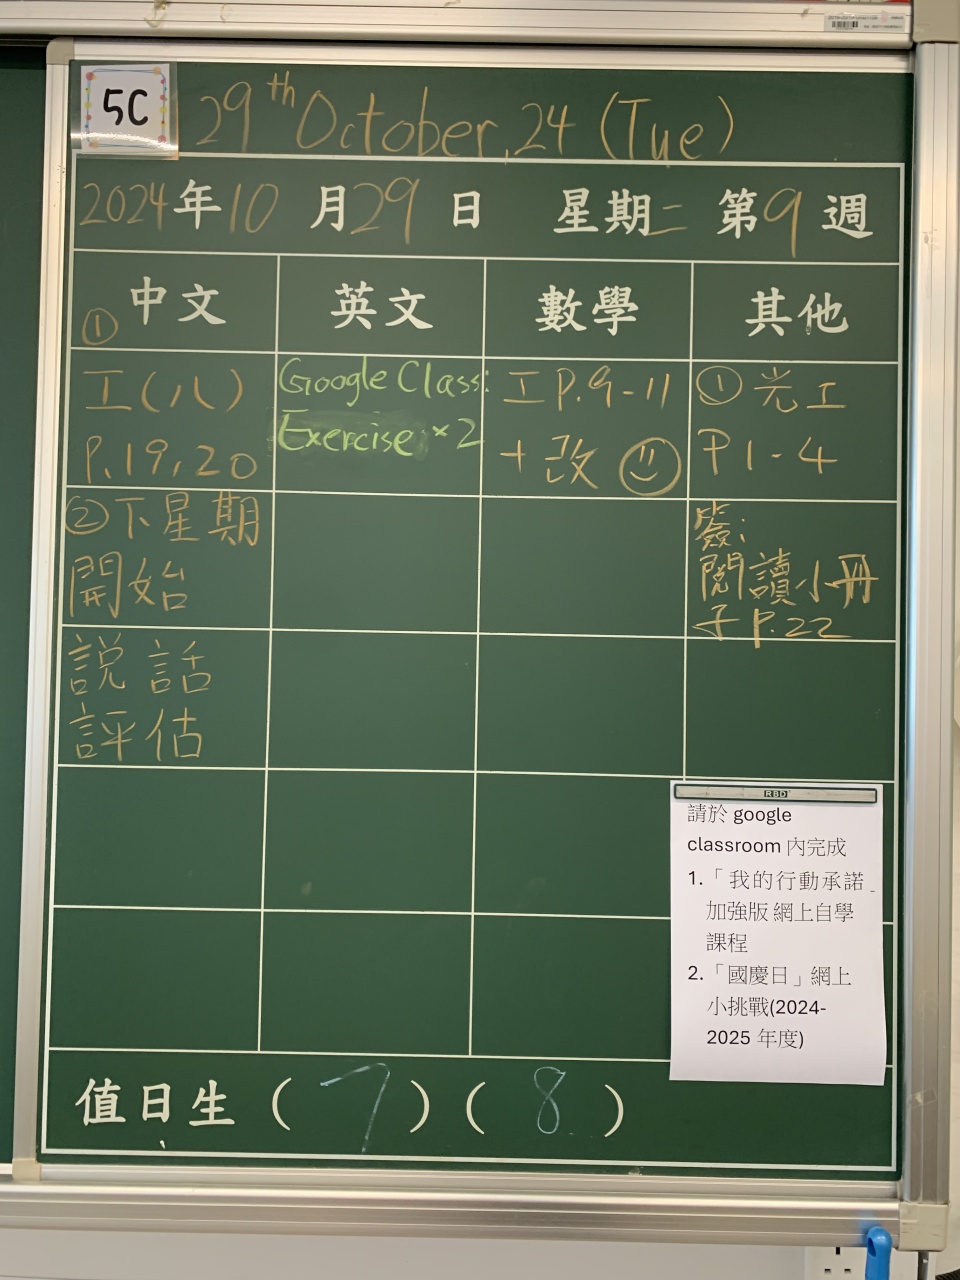 5C
29th October, 24 (Tue)
2024年10月29日 星期二 第9週
中文 英文 數學 其他
①
工(八)
P.19,20
②下星期
開始
説話
評估
Google Class:
Exercise ×2
工P.9-11
+改
①光工
P1-4
簽:
閱讀小冊
子P.22
R&D
請於 google
classroom 內完成
1.「我的行動承諾
加強版 網上自學
課程
2.「國慶日」網上
小挑戰(2024-
2025 年度)
值日生 (7)(8)